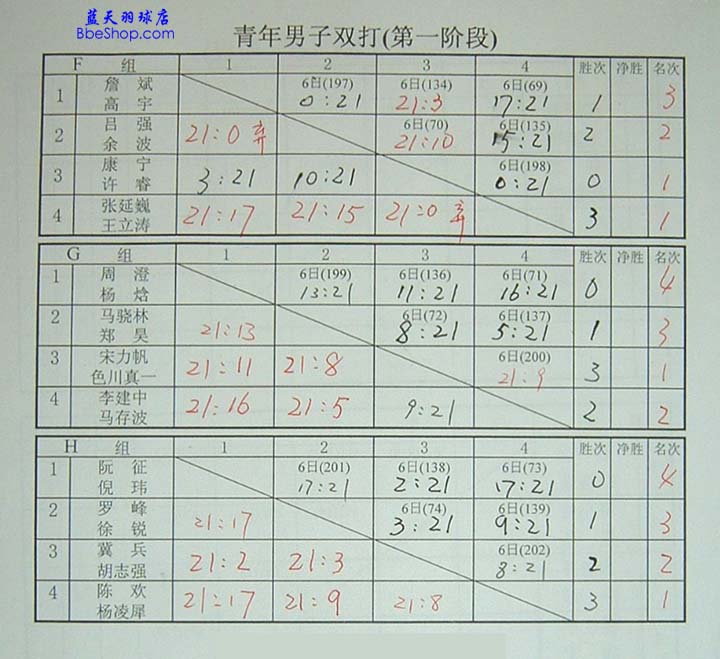 蓝天羽球店
BbeShop.com
青年男子双打(第一阶段)
F 组 1 2 3 4 胜次 净胜 名次
1 詹 斌 6日(197) 6日(134) 6日(69)
高 宇 0:21 21:3 17:21 1 3
2 吕 强 6日(70) 6日(135)
余 波 21:0 弃 21:10 15:21 2 2
3 康 宁 6日(198)
许 睿 3:21 10:21 0:21 0 1
4 张延巍
王立涛 21:17 21:15 21:0 弃 3 1
G 组 1 2 3 4 胜次 净胜 名次
1 周 澄 6日(199) 6日(136) 6日(71)
杨 焓 13:21 11:21 16:21 0 4
2 马骁林 6日(72) 6日(137)
郑 昊 21:13 8:21 5:21 1 3
3 宋力帆 6日(200)
色川真一 21:11 21:8 21:9 3 1
4 李建中
马存波 21:16 21:5 9:21 2 2
H 组 1 2 3 4 胜次 净胜 名次
1 阮 征 6日(201) 6日(138) 6日(73)
倪 玮 17:21 2:21 17:21 0 4
2 罗 峰 6日(74) 6日(139)
徐 锐 21:17 3:21 9:21 1 3
3 冀 兵 6日(202)
胡志强 21:2 21:3 8:21 2 2
4 陈 欢
杨凌犀 21:17 21:9 21:8 3 1